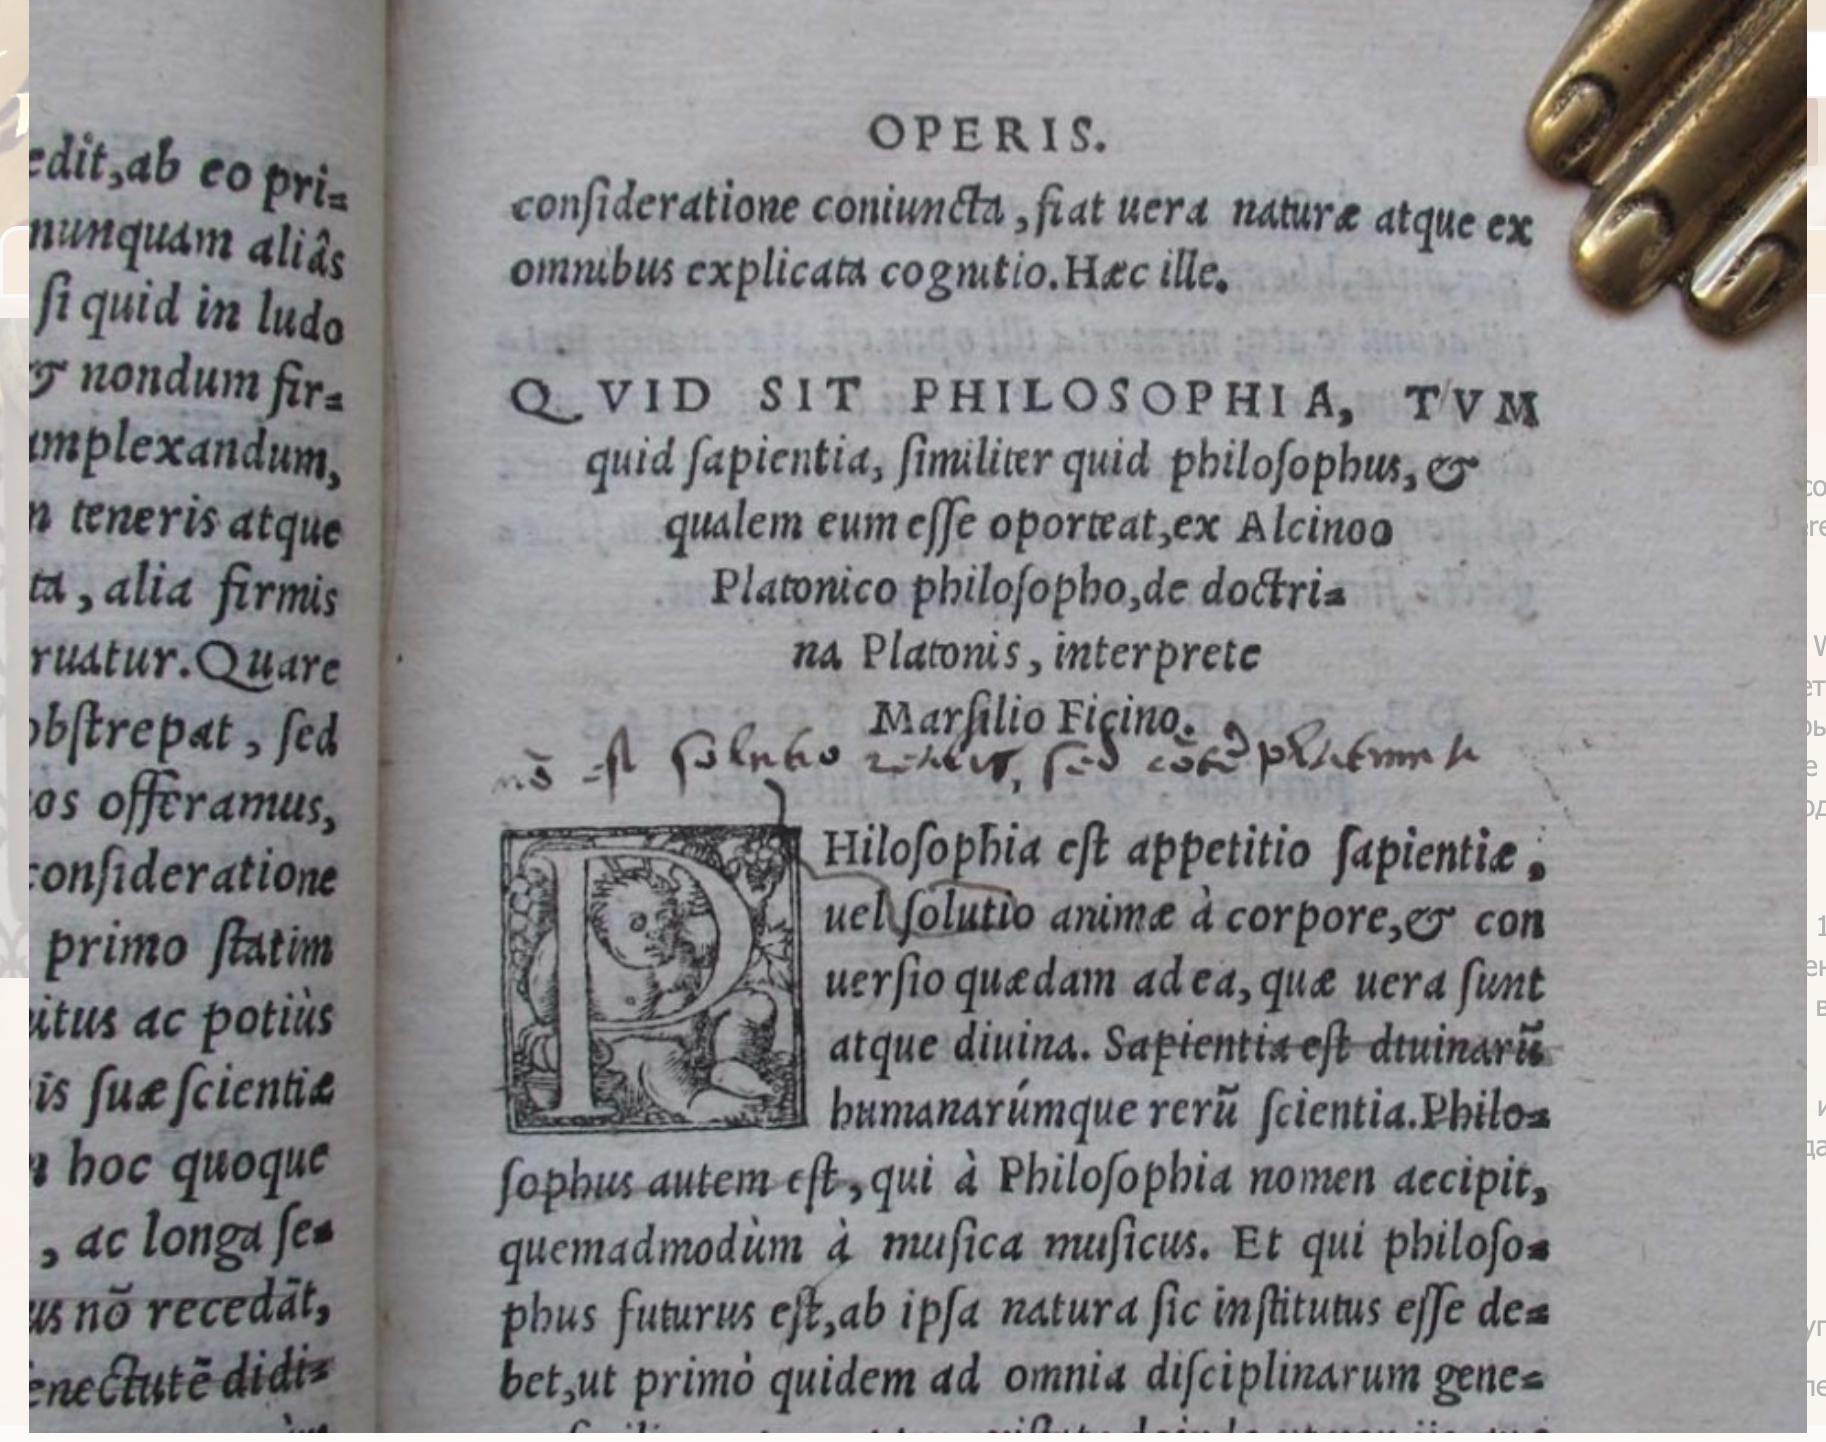 edit,ab eo pri=
nunquam aliâs
ſi quid in ludo
& nondum fir=
amplexandum,
n teneris atque
ta, alia firmis
ruatur. Quare
obſtrepat, ſed
cos offeramus,
conſideratione
primo ſtatim
itus ac potiùs
is ſuæ ſcientiæ
hoc quoque
, ac longa ſe=
us nõ recedāt,
enectutē didi=
OPERIS.
conſideratione coniuncta, fiat uera naturæ atque ex
omnibus explicata cognitio. Hæc ille.
QVID SIT PHILOSOPHIA, TVM
quid ſapientia, ſimiliter quid philoſophus, &
qualem eum eſſe oporteat, ex Alcinoo
Platonico philoſopho, de doctri=
na Platonis, interprete
Marſilio Ficino.
nō est solutio sed
PHiloſophia eſt appetitio ſapientiæ,
uel ſolutio animæ à corpore, & con
uerſio quædam ad ea, quæ uera ſunt
atque diuina. Sapientia eſt diuinarũ
humanarúmque rerũ ſcientia. Philo=
ſophus autem eſt, qui à Philoſophia nomen accipit,
quemadmodùm à muſica muſicus. Et qui philoſo=
phus futurus eſt, ab ipſa natura ſic inſtitutus eſſe de=
bet, ut primò quidem ad omnia diſciplinarum gene=